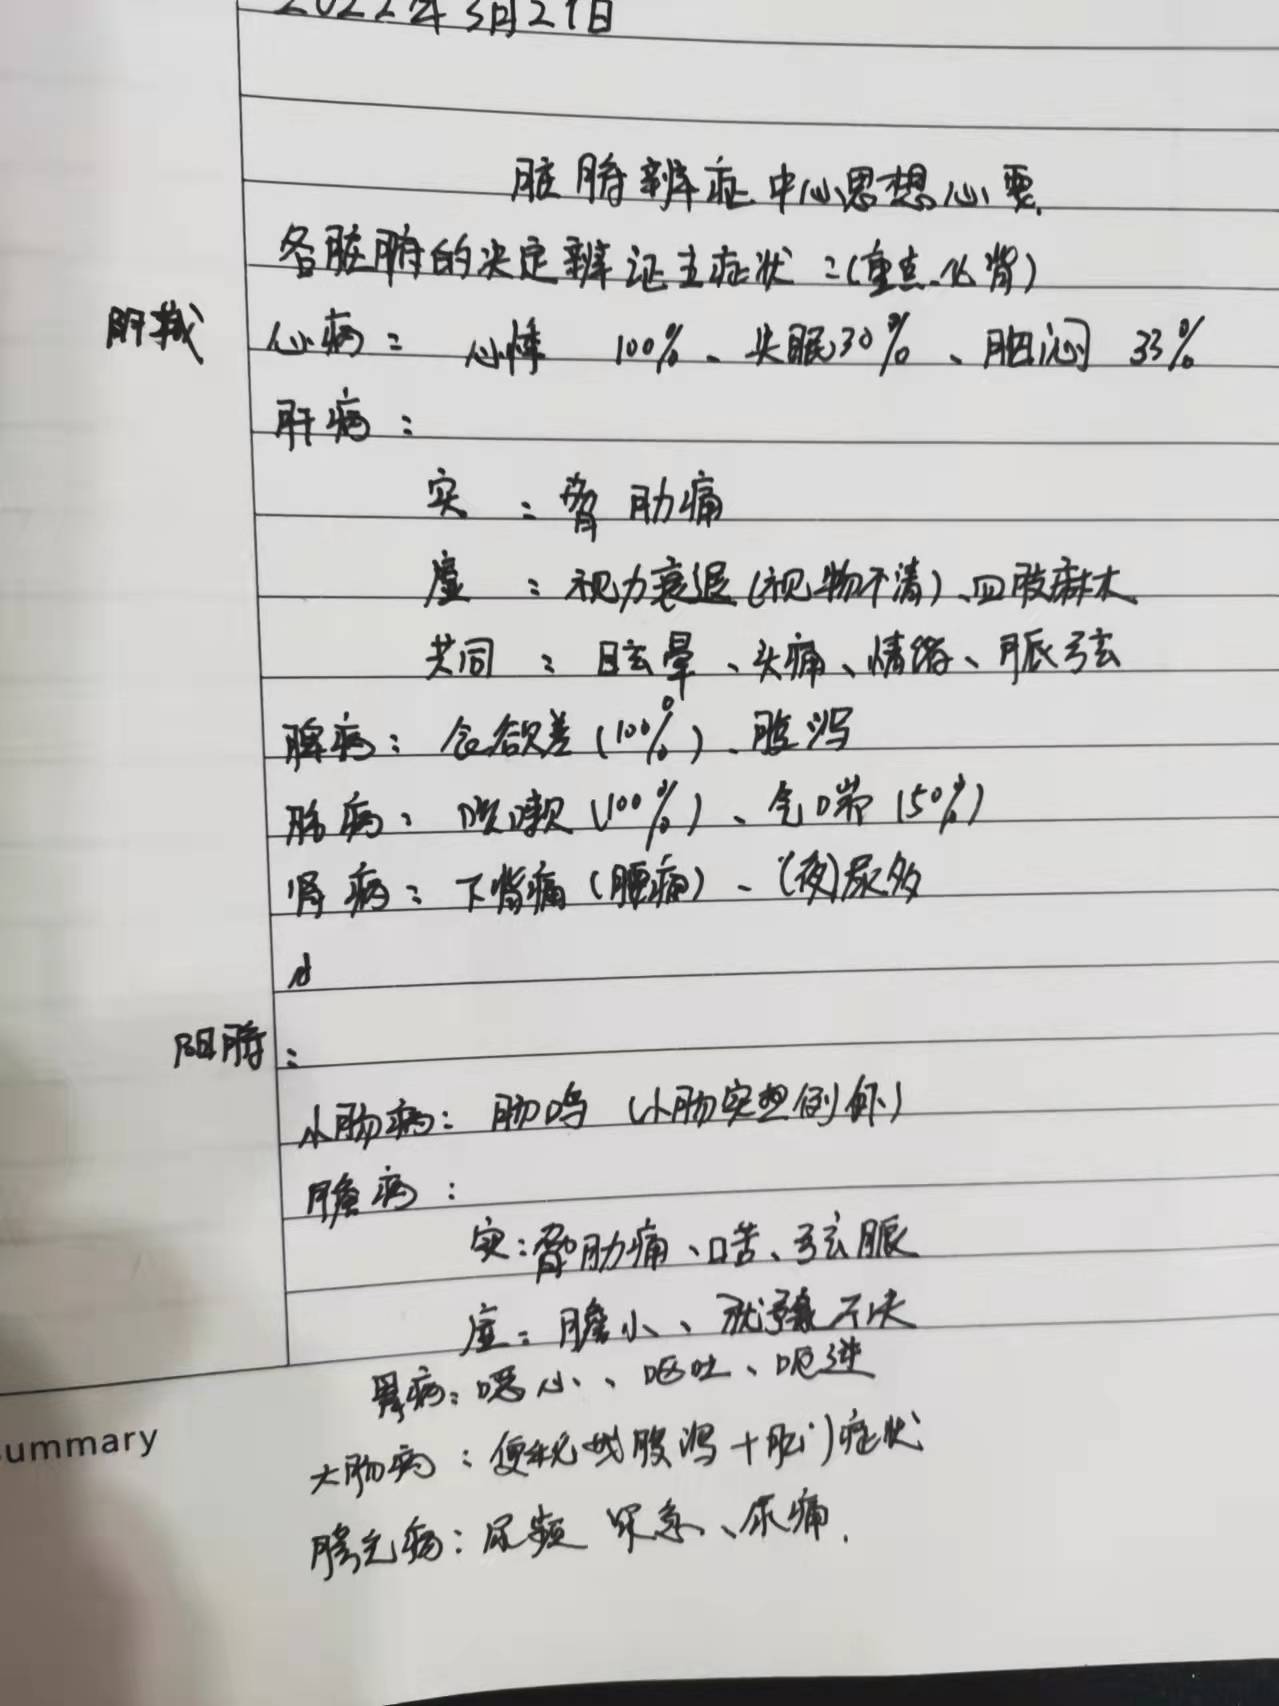 2022年3月29日
脏腑辨症中心思想心要
各脏腑的决定辨证主症状:(重点必背)
阴脏
心病: 心悸 100%、失眠30%、胸闷 33%
肝病:
实 : 胁肋痛
虚 : 视力衰退(视物不清)、四肢麻木
共同 : 目玄晕、头痛、情绪、脈弦
脾病: 食欲差(100%)、腹泻
肺病: 咳嗽(100%)、气喘(50%)
肾病: 下背痛(腰痛)、(夜)尿多
阳腑:
小肠病: 肠鸣 (小肠实热例外)
膽病:
实:胁肋痛、口苦、弦脈
虚: 膽小、犹豫不决
胃病:噁心、呕吐、呃逆
大肠病:便秘或腹泻+肛门症状
膀光病:尿频 尿急、尿痛.
Summary